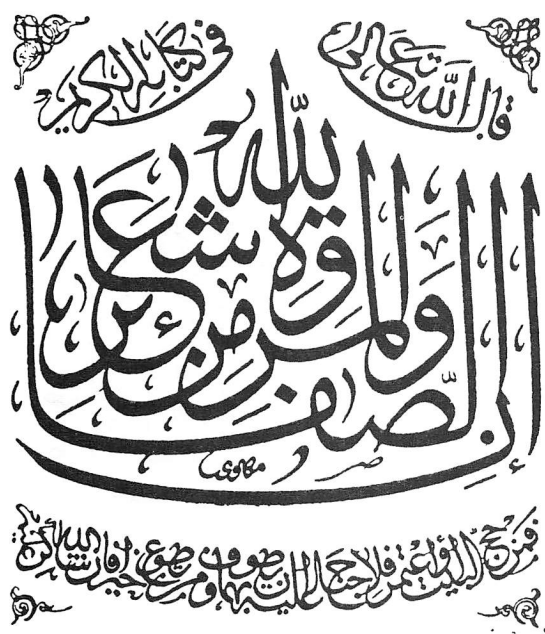 قال الله تعالى
في كتابه الكريم
إن الصفا والمروة من شعائر الله
فمن حج البيت أو اعتمر فلا جناح عليه أن يطوف بهما ومن تطوع خيرا فإن الله شاكر